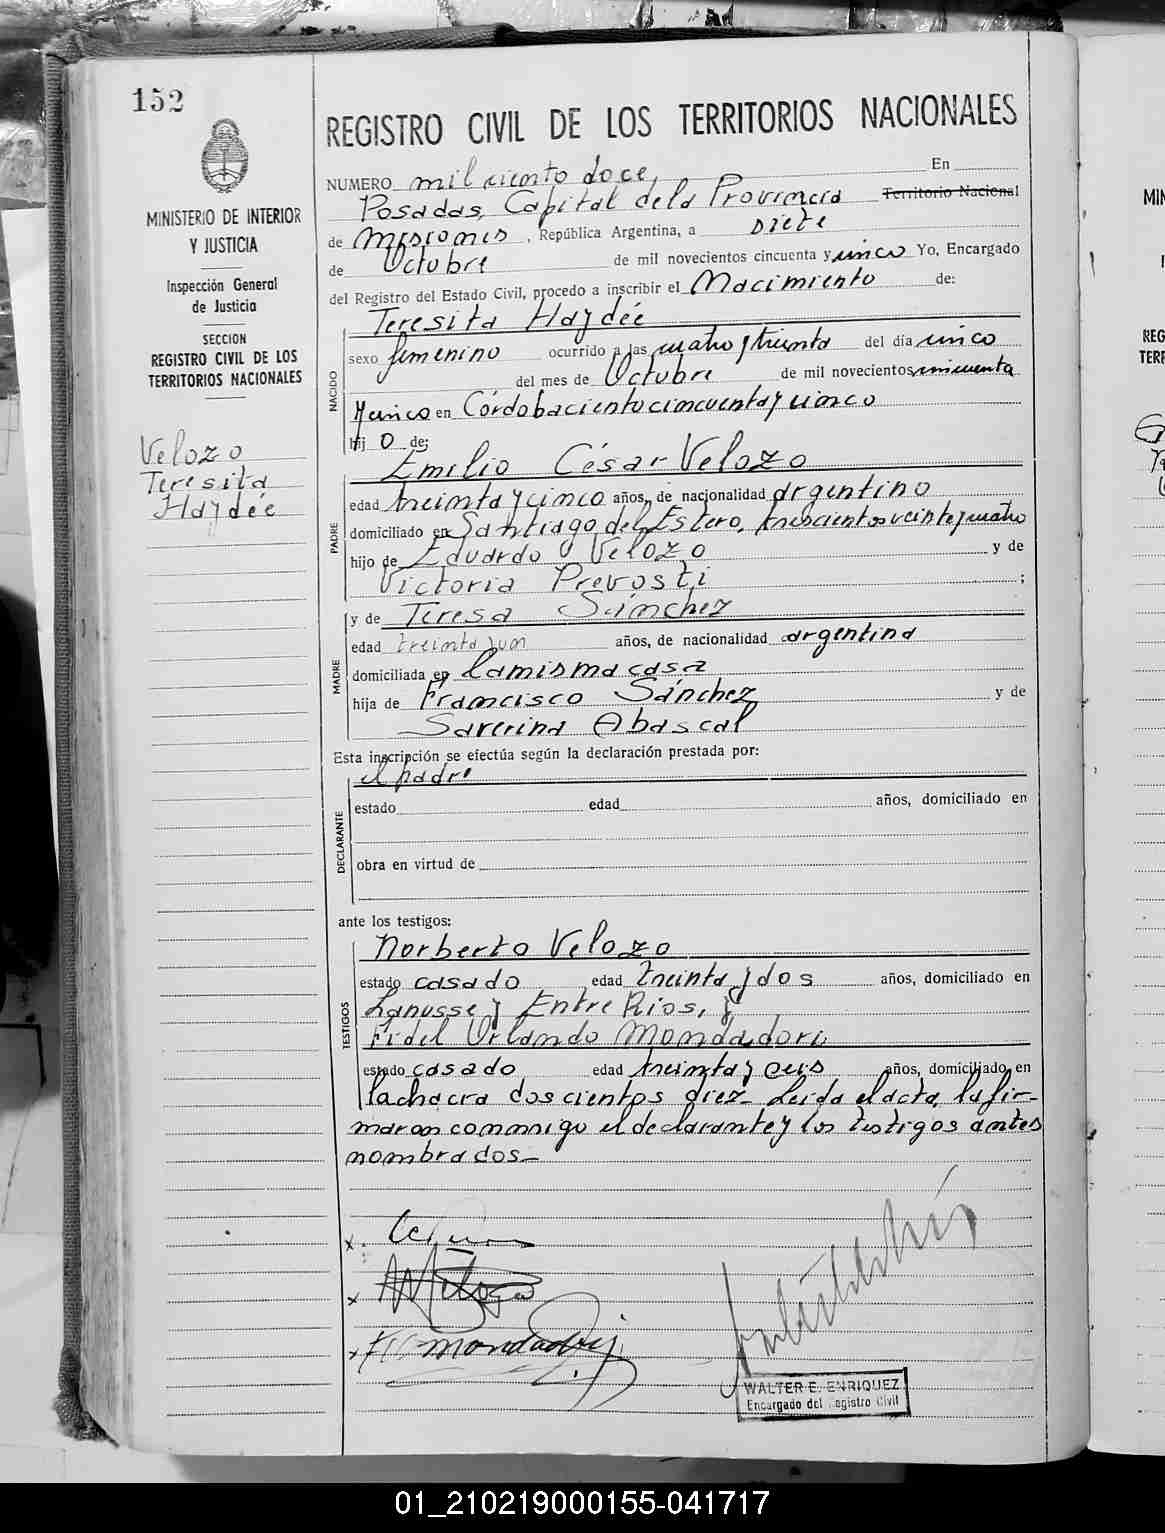 152
MINISTERIO DE INTERIOR
Y JUSTICIA
Inspección General
de Justicia
SECCION
REGISTRO CIVIL DE LOS
TERRITORIOS NACIONALES
Velozo
Teresita
Haydée
REGISTRO CIVIL DE LOS TERRITORIOS NACIONALES
NUMERO mil ciento doce, En
Posadas, Capital de la Provincia Territorio Nacional
de Misiones, República Argentina, a siete
de Octubre de mil novecientos cincuenta y cinco Yo, Encargado
del Registro del Estado Civil, procedo a inscribir el Nacimiento de:
Teresita Haydée
NACIDO
sexo femenino ocurrido a las cuatro y treinta del día cinco
del mes de Octubre de mil novecientos cincuenta
y cinco en Córdoba ciento cincuenta y cinco
hijo de:
Emilio César Velozo
PADRE
edad treinta y cinco años, de nacionalidad argentino
domiciliado en Santiago del Estero, trescientos veinte y cuatro
hijo de Eduardo Velozo y de
Victoria Prevosti ;
y de Teresa Sánchez
MADRE
edad treinta y un años, de nacionalidad argentina
domiciliada en la misma casa
hija de Francisco Sánchez y de
Saverina Abascal
Esta inscripción se efectúa según la declaración prestada por:
el padre
DECLARANTE
estado edad años, domiciliado en
obra en virtud de
ante los testigos:
Norberto Velozo
TESTIGOS
estado casado edad treinta y dos años, domiciliado en
Lanusse y Entre Rios, y
Fidel Orlando Mondadori
estado casado edad treinta y seis años, domiciliado en
la chacra doscientos diez- Leida el acta, la fir-
maron conmigo el declarante y los testigos antes
nombrados-
x
x Velozo
x Mondadori
WALTER E. ENRIQUEZ
Encargado del Registro Civil
MIN
REG
TERR
01_210219000155-041717